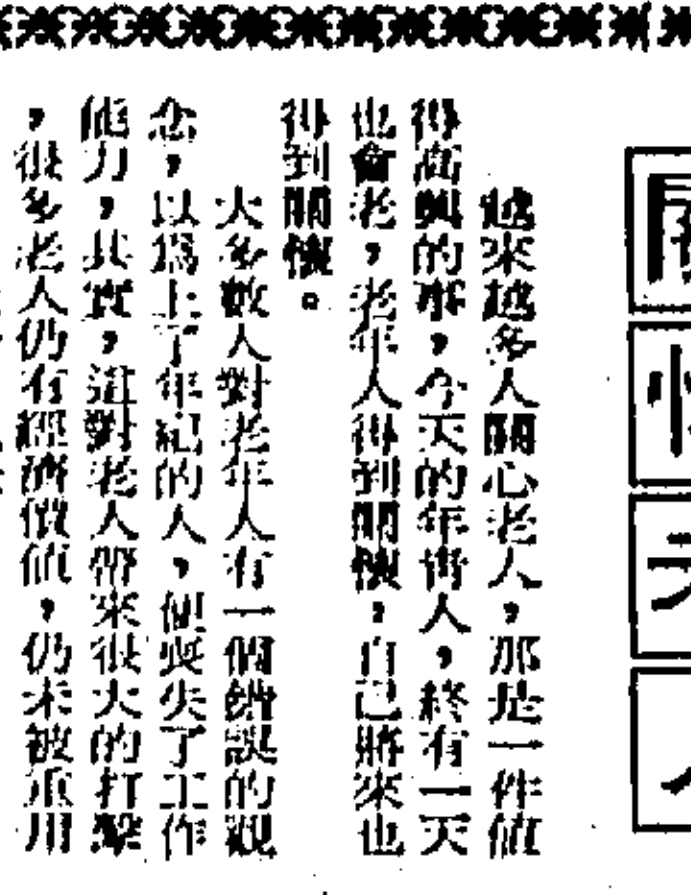 越來越多人關心老人，那是一件值
得高興的事，今天的年青人，終有一天
也會老，老年人得到關懷，自己將來也
得到關懷。
大多數人對老年人有一個錯誤的觀
念，以爲上了年紀的人，便喪失了工作
能力，其實，這對老人帶來很大的打擊
，很多老人仍有經濟價值，仍未被重用